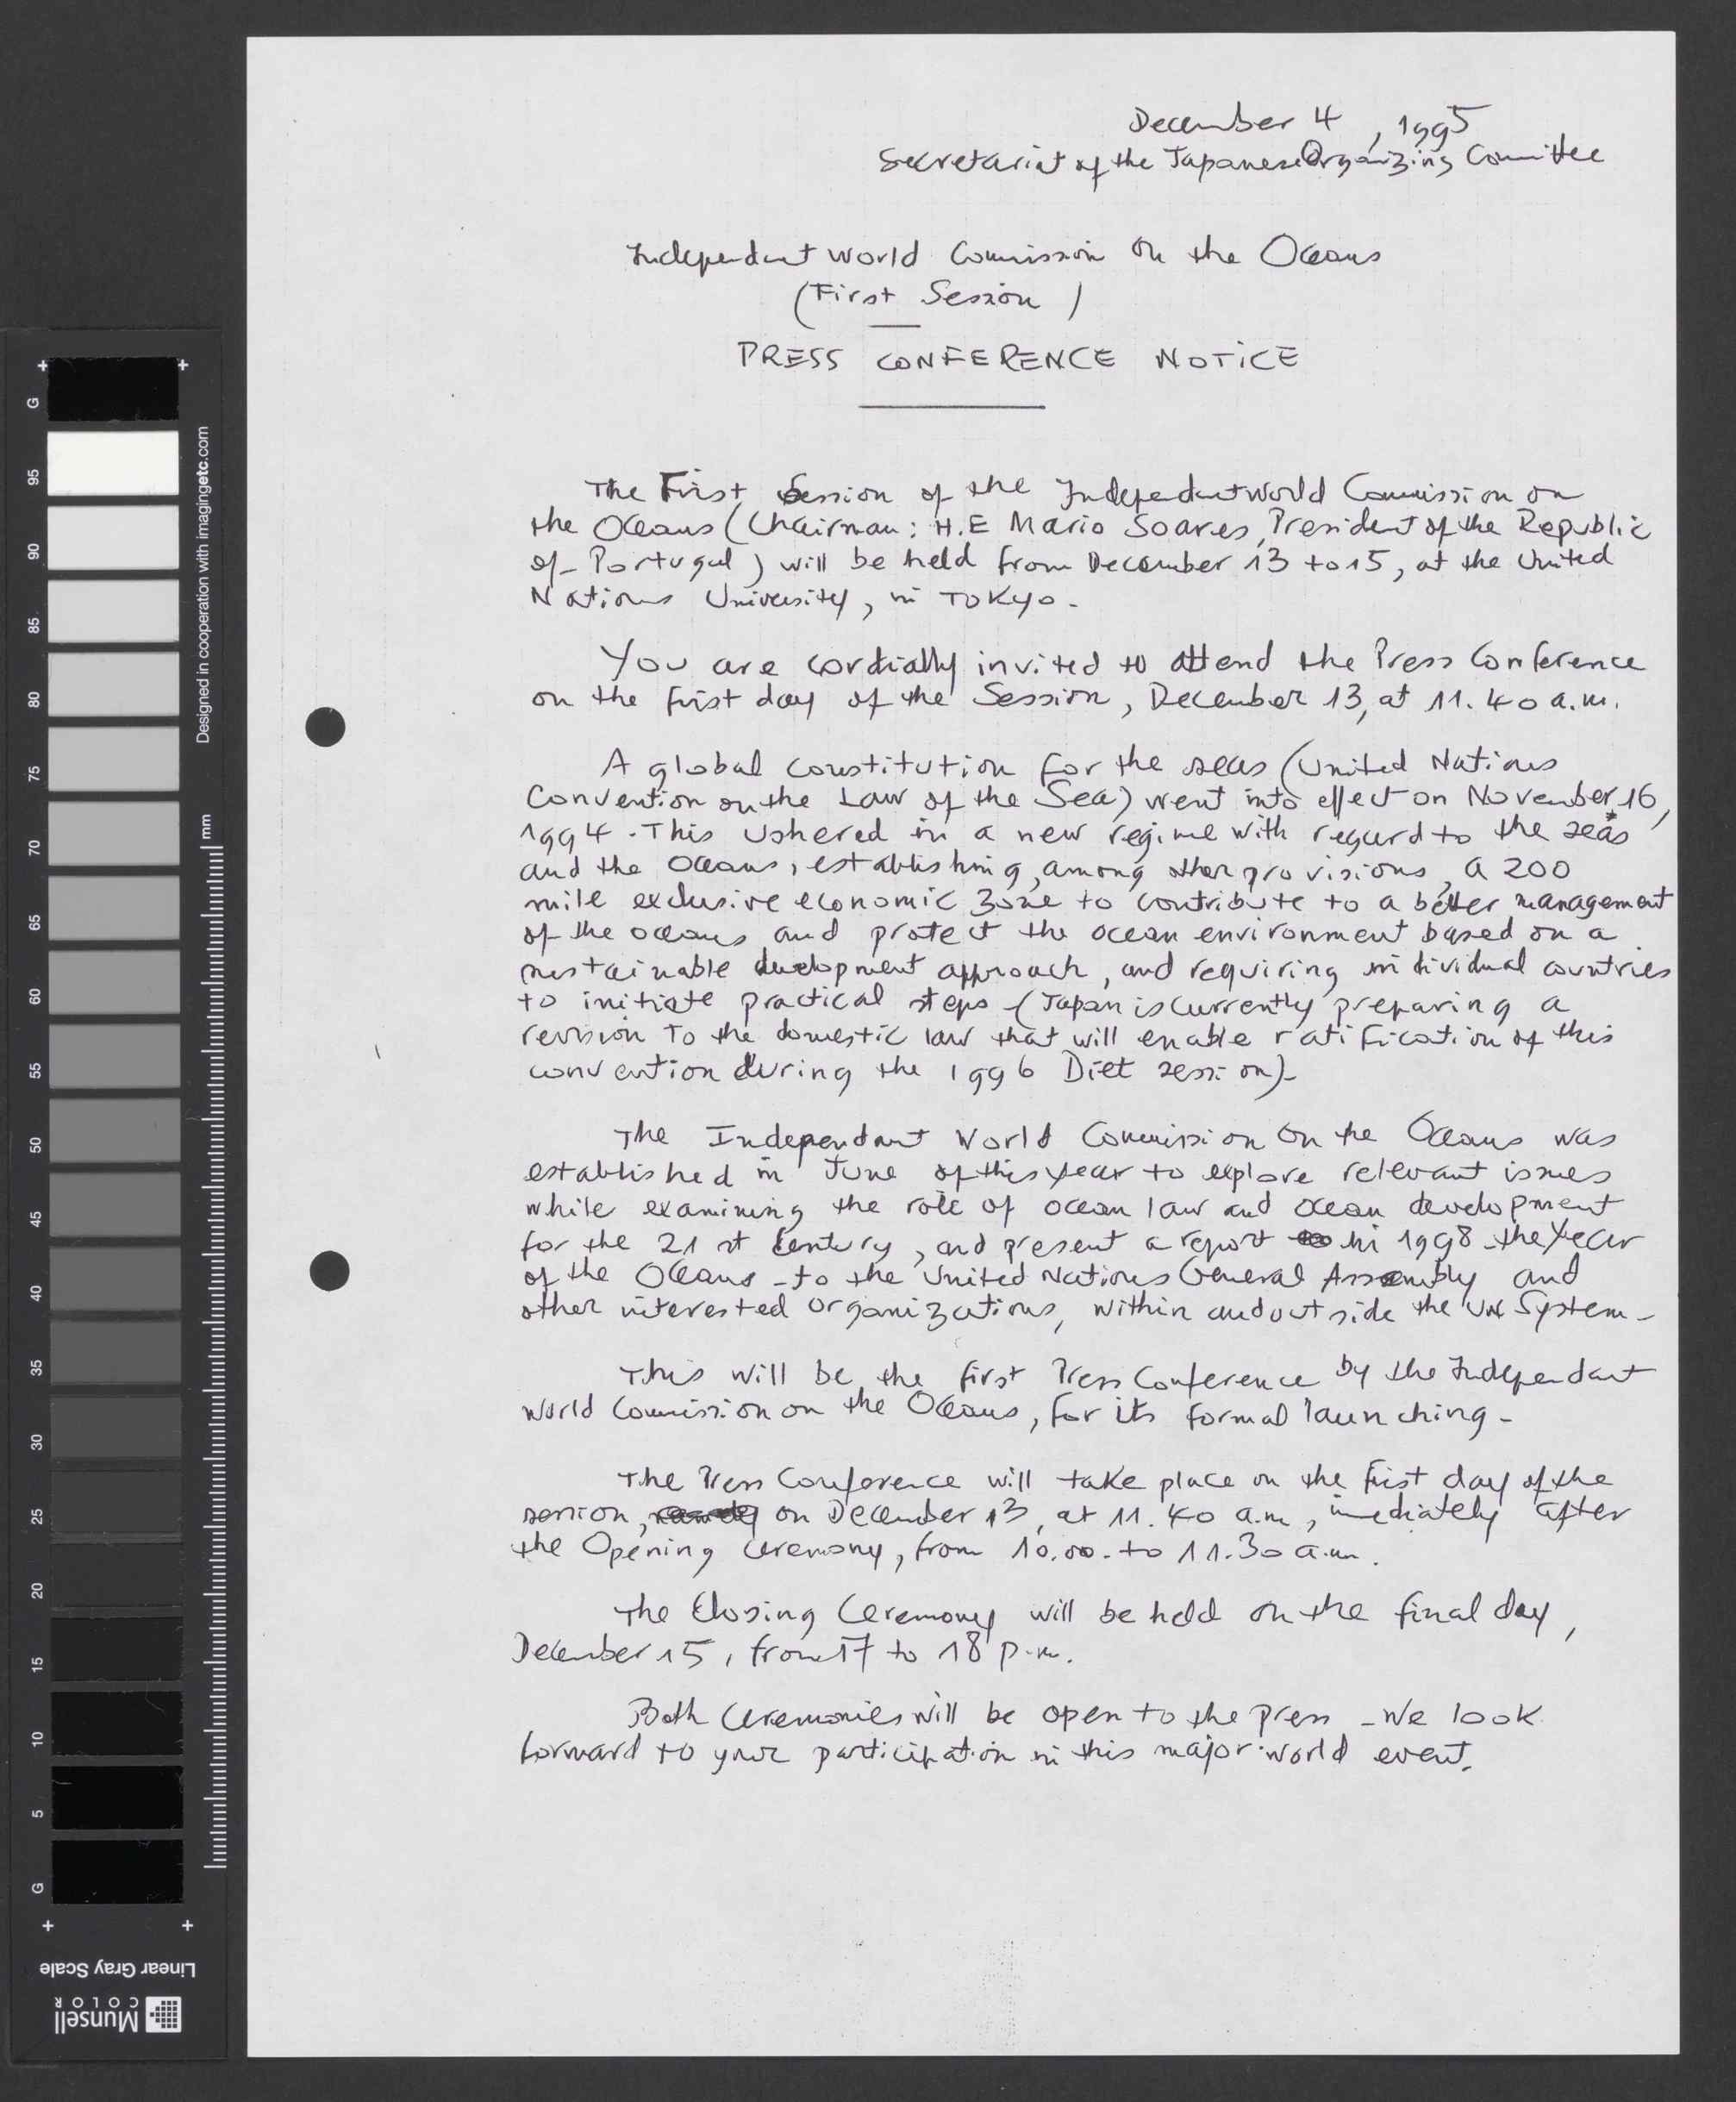 December 4, 1995
Secretariat of the Japanese Organizing Comittee
Independant World Commission on the Oceans
(First Session)
PRESS CONFERENCE NOTICE
The First Session of the Independant World Commission on
the Oceans (Chairman: H.E Mario Soares, President of the Republic
of Portugal) will be held from December 13 to 15, at the United
Nations University, in Tokyo.
You are cordially invited to attend the Press Conference
on the first day of the Session, December 13, at 11.40 a.m.
A global constitution for the seas (United Nations
Convention on the Law of the Sea) went into effect on November 16,
1994. This ushered in a new regime with regard to the seas
and the Oceans, establishing, among other provisions, a 200
mile exclusive economic zone to contribute to a better management
of the oceans and protect the ocean environment based on a
sustainable development approach, and requiring individual countries
to initiate practical steps (Japan is currently preparing a
revision to the domestic law that will enable ratification of this
convention during the 1996 Diet session).
The Independant World Commission on the Oceans was
established in June of this year to explore relevant issues
while examining the role of ocean law and ocean development
for the 21st Century, and present a report in 1998 - the Year
of the Oceans - to the United Nations General Assembly and
other interested organizations, within and outside the UN System.
This will be the first Press Conference by the Independant
World Commission on the Oceans, for its formal launching.
The Press Conference will take place on the first day of the
session, on December 13, at 11.40 a.m, imediately after
the Opening Ceremony, from 10.00. to 11.30 a.m.
The Closing Ceremony will be held on the final day,
December 15, from 17 to 18 p.m.
Both Ceremonies will be open to the press - We look
forward to your participation in this major world event.
G
95
90
85
80
75
70
65
60
55
50
45
40
35
30
25
20
15
10
5
G
Designed in cooperation with imagingetc.com
mm
Linear Gray Scale
Munsell
COLOR